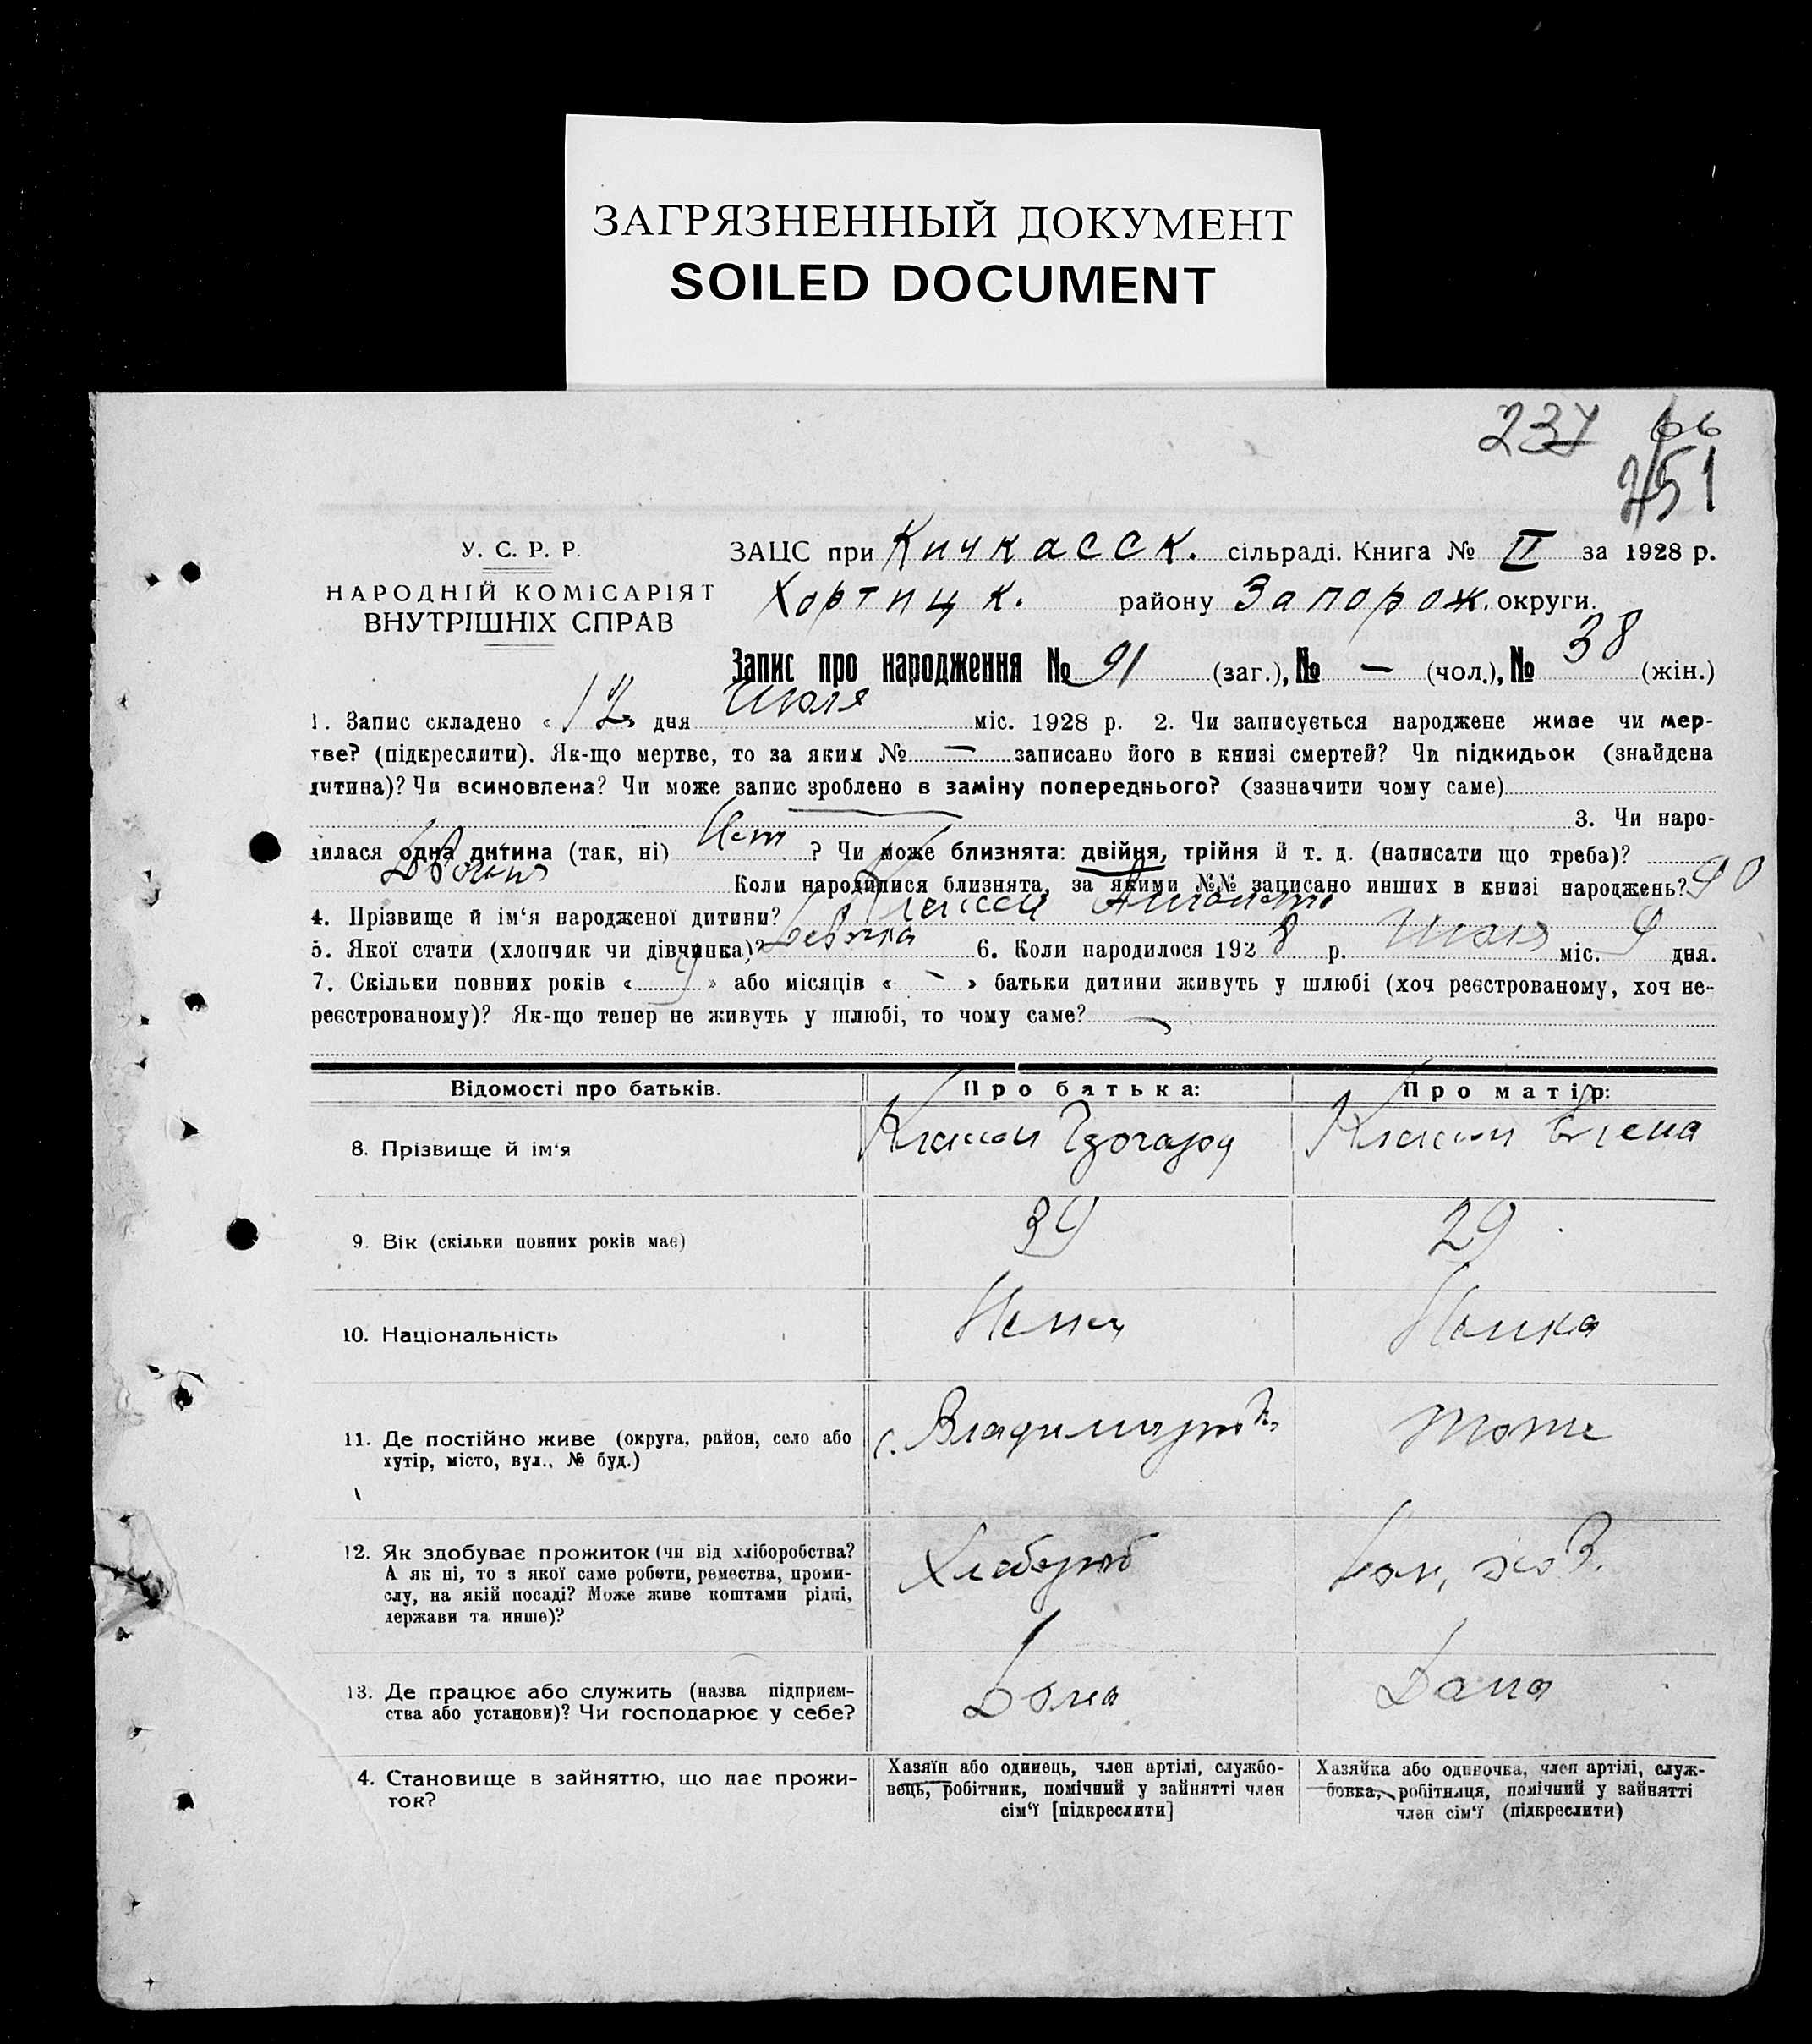 ЗАГРЯЗНЕННЫЙ ДОКУМЕНТ
SOILED DOCUMENT
237 66
251
У. С. Р. Р.
НАРОДНІЙ КОМІСАРІЯТ
ВНУТРІШНІХ СПРАВ
ЗАЦС при Кичкасск. сільраді. Книга № II за 1928 р.
Хортицк. району Запорож. округи.
Запис про народження № 91 (заг.), № — (чол.), № 38 (жін.)
1. Запис складено « 12 » дня Июля міс. 1928 р. 2. Чи записується народжене живе чи мер-
тве? (підкреслити). Як-що мертве, то за яким № — записано його в книзі смертей? Чи підкидьок (знайдена
дитина)? Чи всиновлена? Чи може запис зроблено в заміну попереднього? (зазначити чому саме)
3. Чи наро-
дилася одна дитина (так, ні) Нет ? Чи може близнята: двійня, трійня й т. д. (написати що треба)?
Двойня Коли народилися близнята, за якими №№ записано инших в книзі народжень? 90
4. Прізвище й ім'я народженої дитини? Классен
5. Якої стати (хлопчик чи дівчинка)? Девочка 6. Коли народилося 1928 р. Июля міс. 9 дня.
7. Скільки повних років « » або місяців « — » батьки дитини живуть у шлюбі (хоч реєстрованому, хоч не-
реєстрованому)? Як-що тепер не живуть у шлюбі, то чому саме? —
Відомості про батьків. Про батька: Про матір:
8. Прізвище й ім'я Классен Классен Елена
9. Вік (скільки повних років має) 39 29
10. Національність Немец Немка
11. Де постійно живе (округа, район, село або
хутір, місто, вул., № буд.) с. Владимировк. тоже
12. Як здобуває прожиток (чи від хліборобства?
А як ні, то з якої саме роботи, ремества, проми-
слу, на якій посаді? Може живе коштами рідні,
держави та инше)? Хлебороб
13. Де працює або служить (назва підприєм-
ства або установи)? Чи господарює у себе? Дома Дома
4. Становище в зайняттю, що дає прожи-
ток?
Хазяїн або одинець, член артілі, службо-
вець, робітник, помічний у зайнятті член
сім'ї [підкреслити]
Хазяйка або одиночка, член артілі, служ-
бовка, робітниця, помічний у зайнятті
член сім'ї (підкреслити)